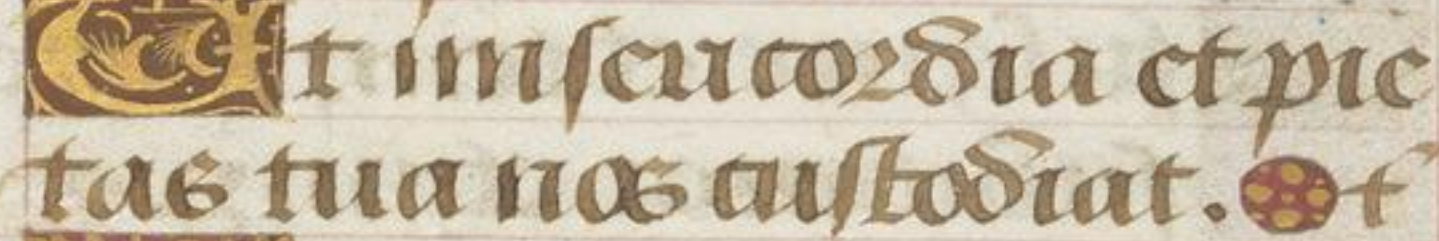 Et misericordia et pie
tas tua nos custodiat. +